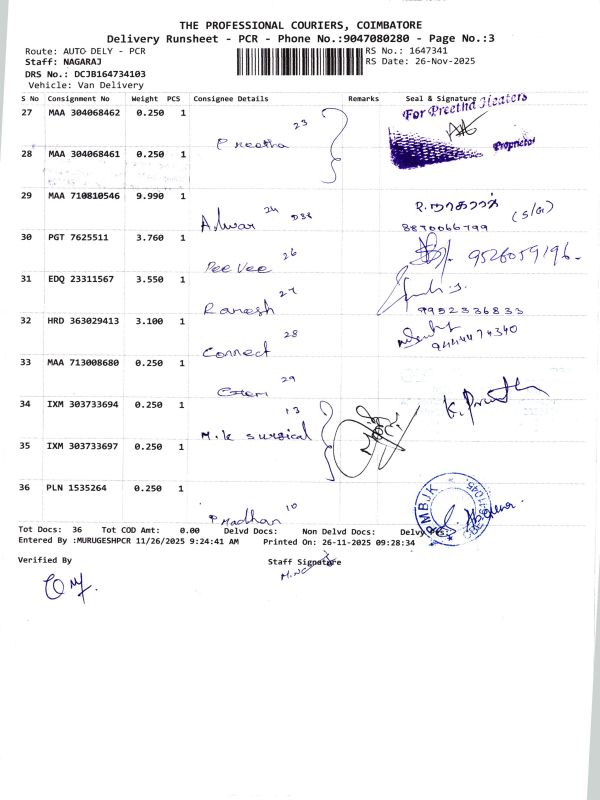 THE PROFESSIONAL COURIERS, COIMBATORE
Delivery Runsheet - PCR - Phone No.:9047080280 - Page No.:3
Route: AUTO DELY - PCR
RS No.: 1647341
Staff: NAGARAJ
RS Date: 26-Nov-2025
DRS No.: DCJB164734103
Vehicle: Van Delivery
S No Consignment No Weight PCS Consignee Details Remarks Seal & Signature
For Preetha Heaters
27 MAA 304068462 0.250 1
23
Preetha
Proprietor
28 MAA 304068461 0.250 1
29 MAA 710810546 9.990 1
Alwar 24 D38
ப. நாகராஜ் (S/G)
8870066799
30 PGT 7625511 3.760 1
Pee Vee 26
9526059196-
31 EDQ 23311567 3.550 1
Ranesh 27
9952336833
32 HRD 363029413 3.100 1
Connect 28
9444474340
33 MAA 713008680 0.250 1
29
34 IXM 303733694 0.250 1
13
M.k surgical
35 IXM 303733697 0.250 1
36 PLN 1535264 0.250 1
PMBJK
Madhan 10
Tot Docs: 36 Tot COD Amt: 0.00 Delvd Docs: Non Delvd Docs: Delvy
Entered By :MURUGESHPCR 11/26/2025 9:24:41 AM Printed On: 26-11-2025 09:28:34
Verified By
Staff Signature